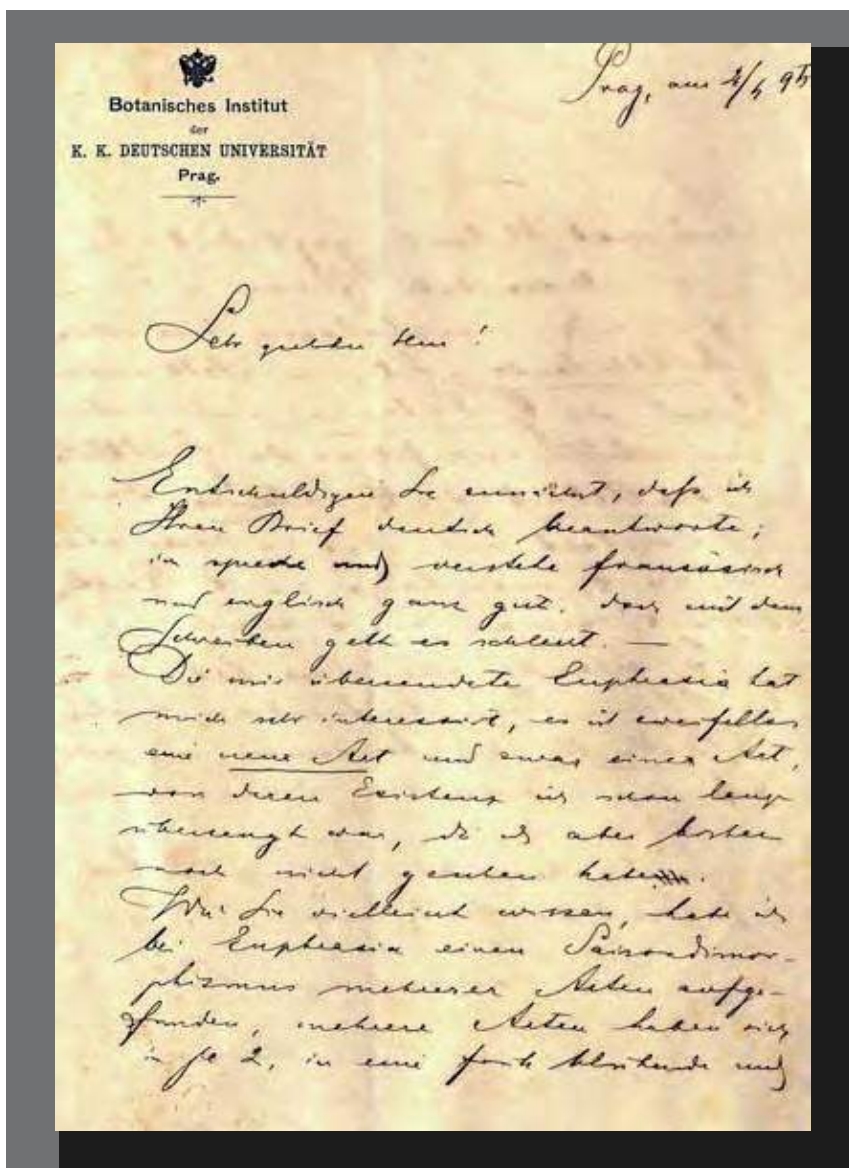 Botanisches Institut
der
K. K. DEUTSCHEN UNIVERSITÄT
Prag.
Prag, am
Sehr geehrter Herr!
Entschuldigen Sie zunächst, dass ich
Ihren Brief deutsch beantworte;
ich spreche und verstehe französisch
und englisch ganz gut, doch mit dem
Schreiben geht es schlecht. —
Die mir übersendete Euphrasia hat
mich sehr interessirt, es ist zweifellos
eine neue Art und zwar einer Art,
von deren Existenz ich schon lange
überzeugt war, die ich aber bisher
noch nicht gesehen habe.
Wie Sie vielleicht wissen, habe ich
bei Euphrasia einen Saisondimor-
phismus mehrerer Arten aufge-
funden, mehrere Arten haben sich
in je 2, in eine früh blühende und